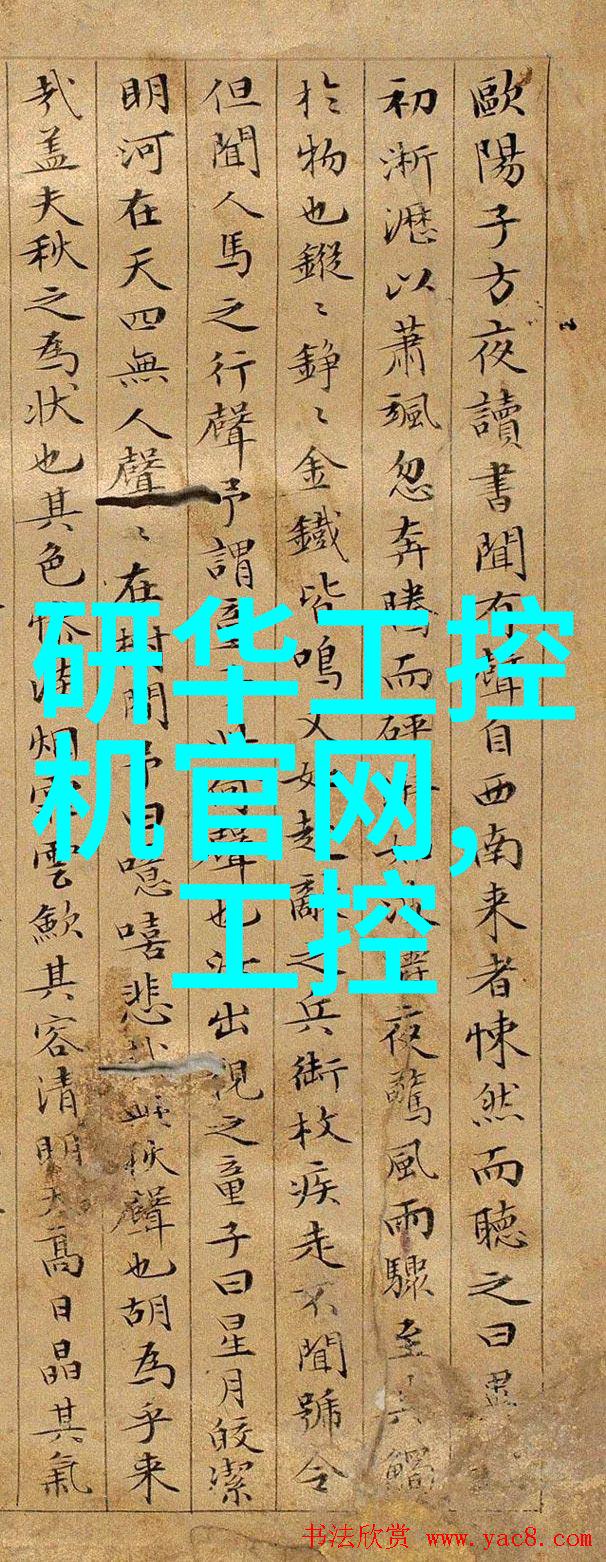 歐陽子方夜讀書聞有聲自西南来者悚然而聽之曰異
初淅瀝以蕭颯忽奔騰而砰如波夜驚風雨驟至其觸
扵物也鏦〻錚〻金鐵皆鳴又如赴敵之兵銜枚疾走不聞號令
但聞人馬之行聲予謂童此何聲也汝出視之童子曰星月皎潔
明河在天四無人聲〻在樹間予曰噫嘻悲秋聲也胡為乎来
哉盖夫秋之為状也其色惨淡烟霏雲歛其容清明天高日晶其氣
研华工控
机官网,
工控
书法欣赏 www.yac8.com